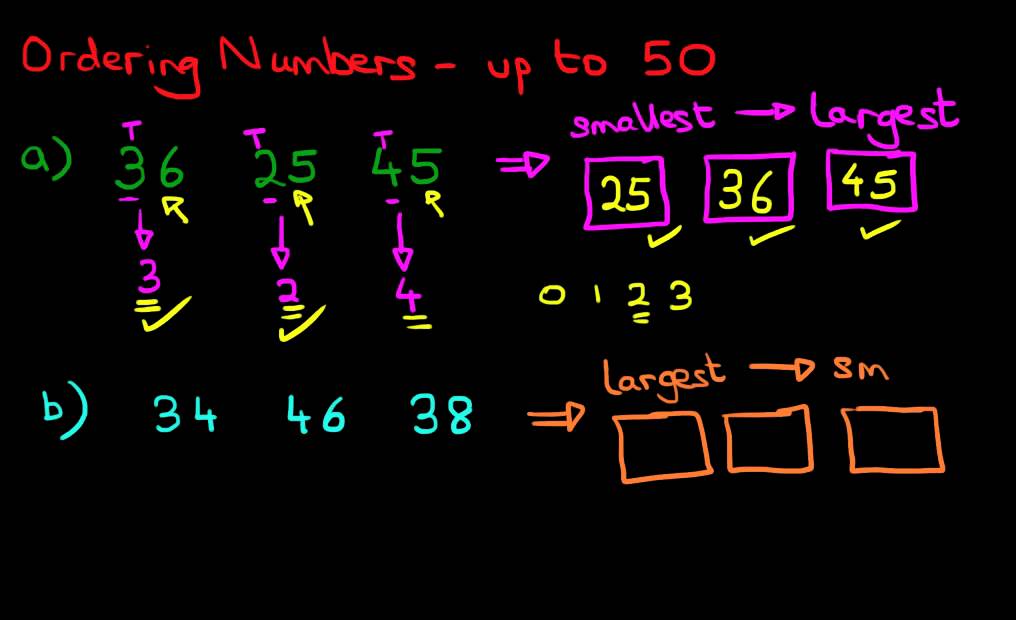 Ordering Numbers - up to 50
smallest → largest
T T T
a) 36 25 45 ⇒ 25 36 45
3 2 4
0 1 2 3
largest → sm
b) 34 46 38 ⇒